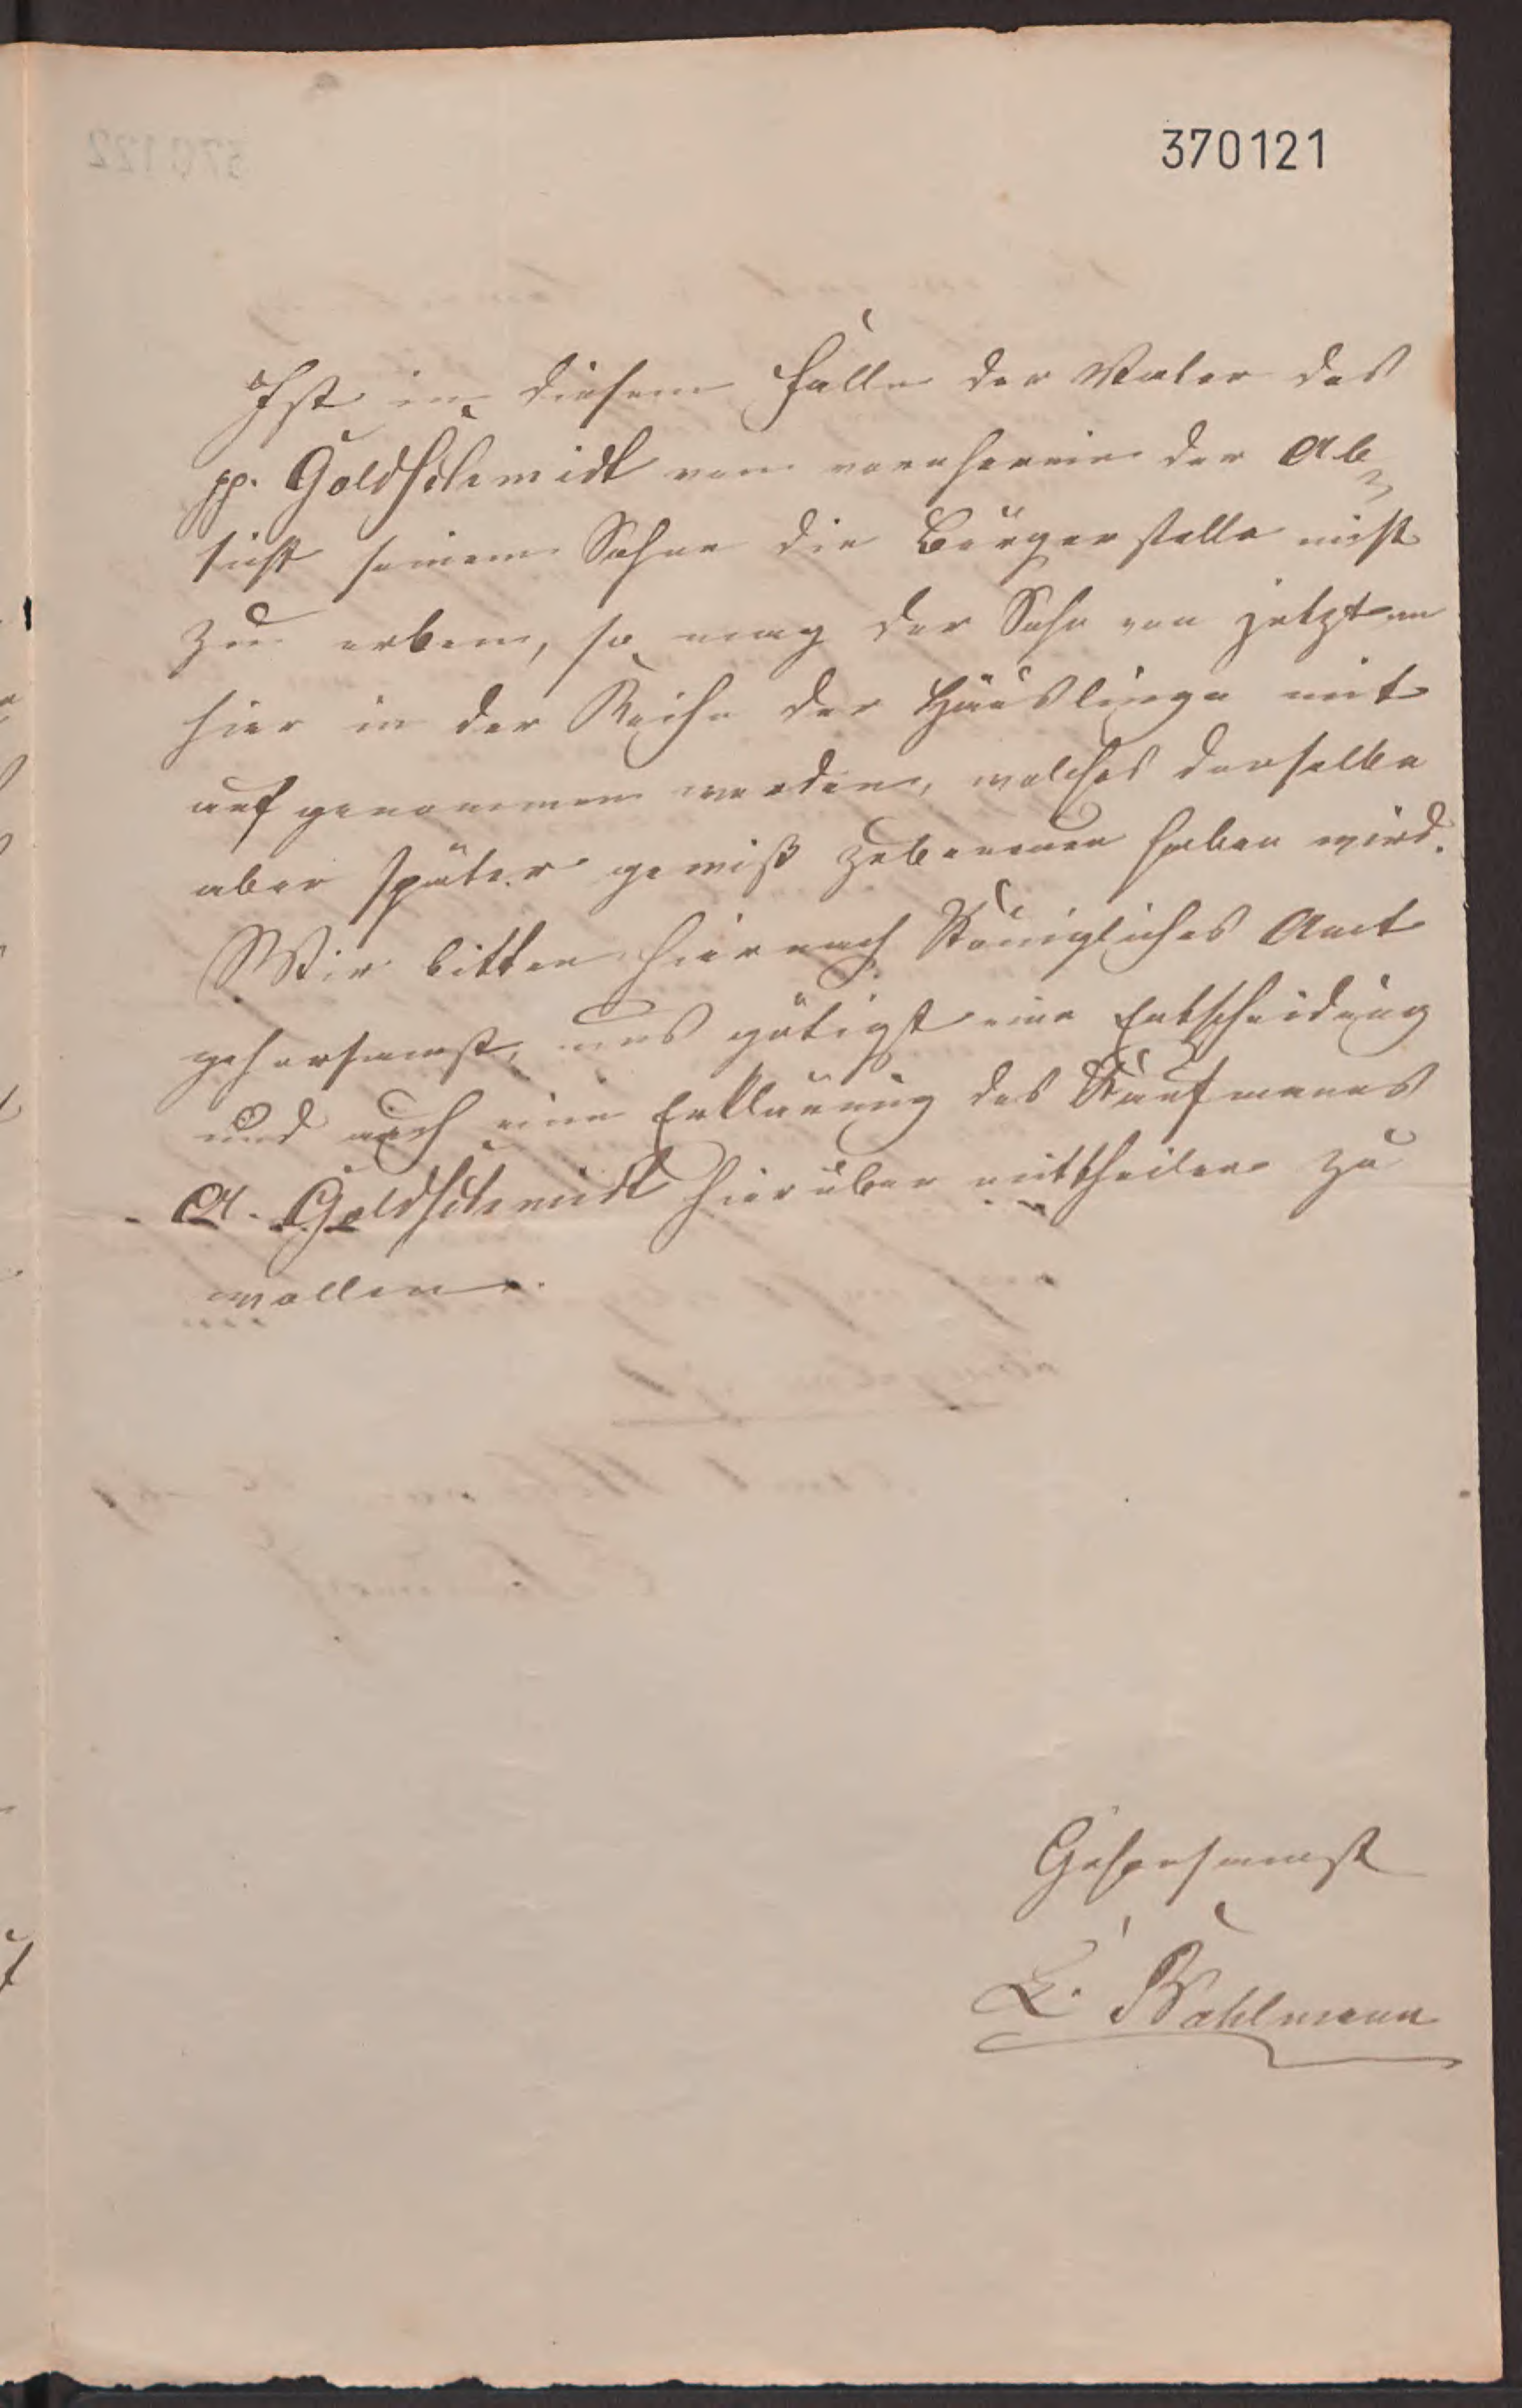 370121
Ist in diesem Falle der Vater des
pp. Goldschmidt von vornherein der Ab-
sicht seinem Sohne die Bürgerstelle nicht
zu erben, so mag der Sohn von jetzt an
hier in der Reihe der Häuslinge mit
aufgenommen werden, welches derselbe
aber später gewiß zu bereuen haben wird.
Wir bitten hiernach Königliches Amt
gehorsamst, uns gütigst eine Entscheidung
und auch eine Erklärung des Kaufmanns
A. Goldschmidt hierüber mittheilen zu
wollen.
Gehorsamst
L. Wahlmann